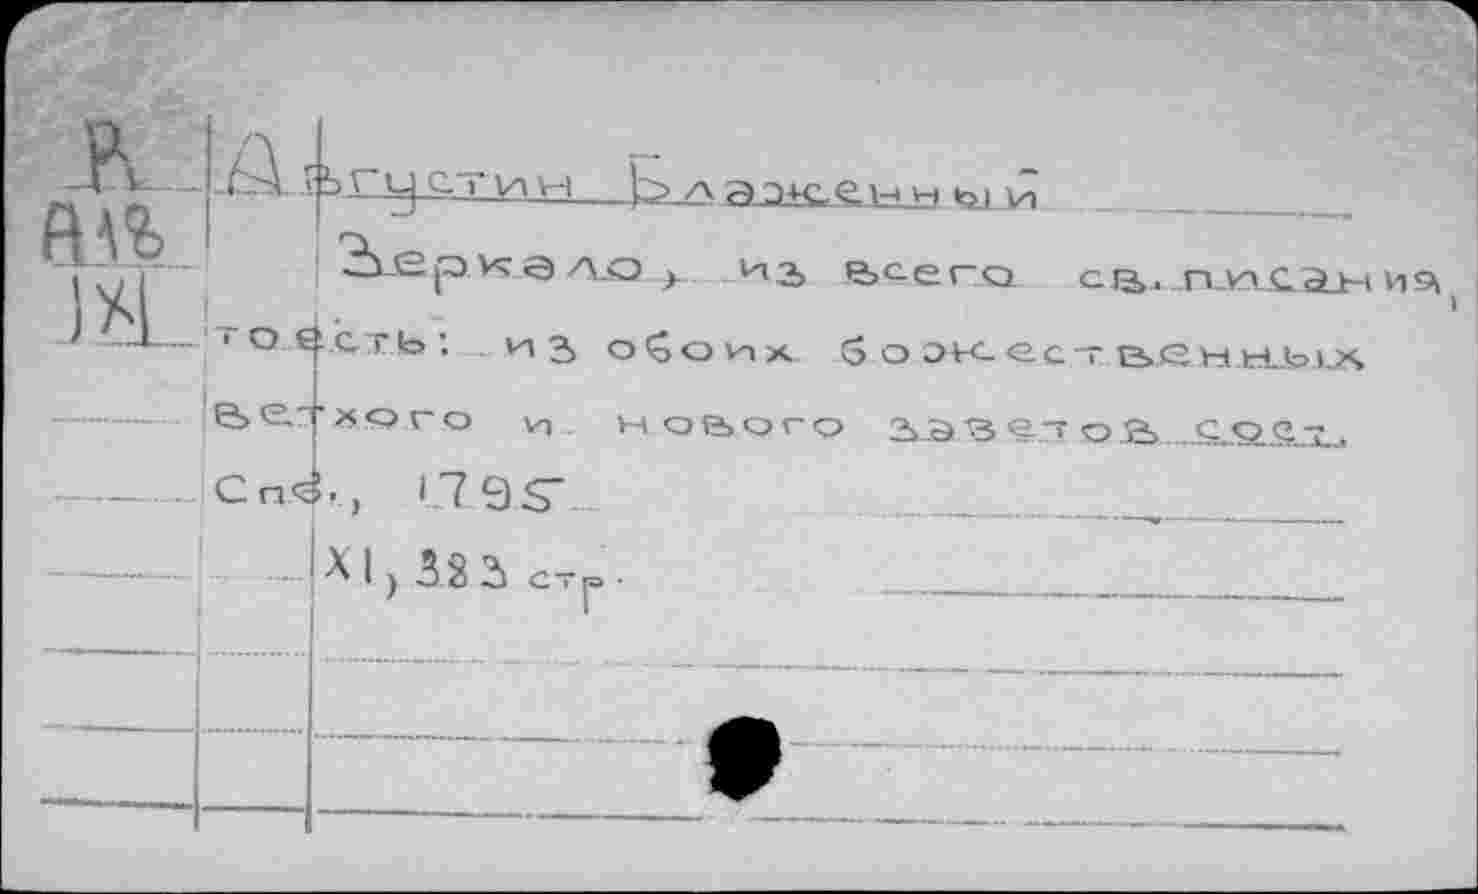 Августин Блаженный
Зеркало, из всего св. писания,
то есть: из обоих божественных
ветхого и нового заветов сост.
Спб., 1795
XI, 323 стр.